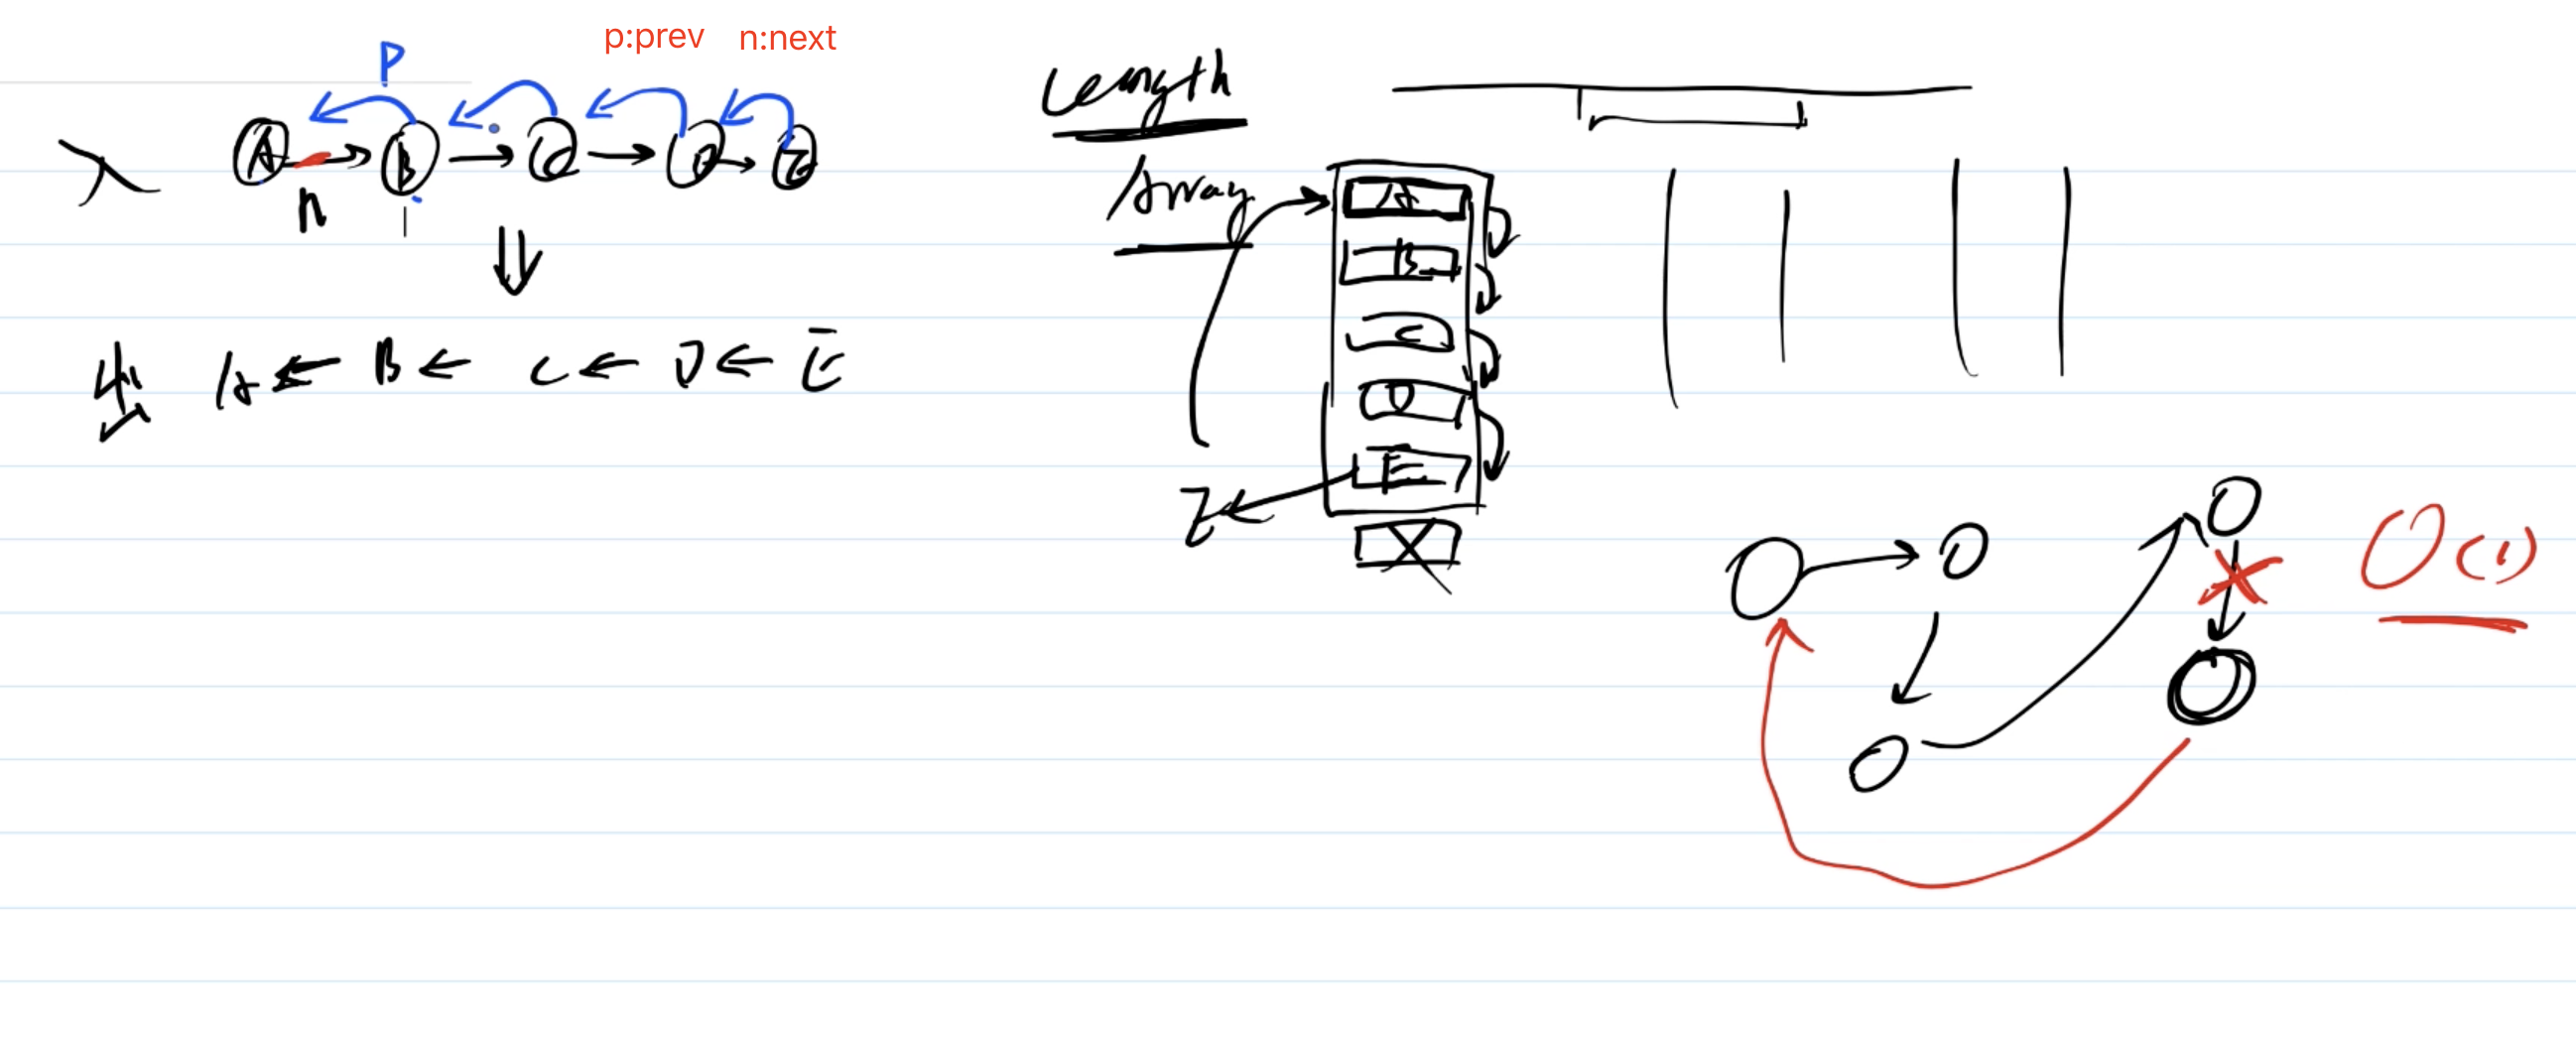 p:prev n:next
P
A → B → C → D → E
n
入
出 A ← B ← C ← D ← E
Length
Array
A
B
C
D
E
Z
O(1)